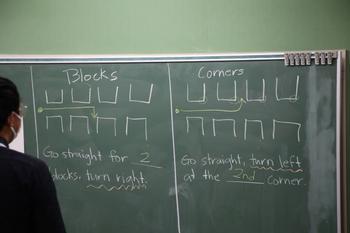 Blocks
Go straight for 2
blocks, turn right.
Corners
Go straight, turn left
at the 2nd corner.